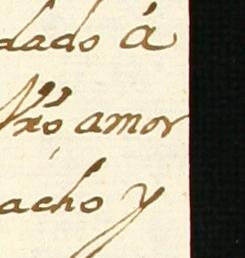 dado á
Nrõ amor
acho y